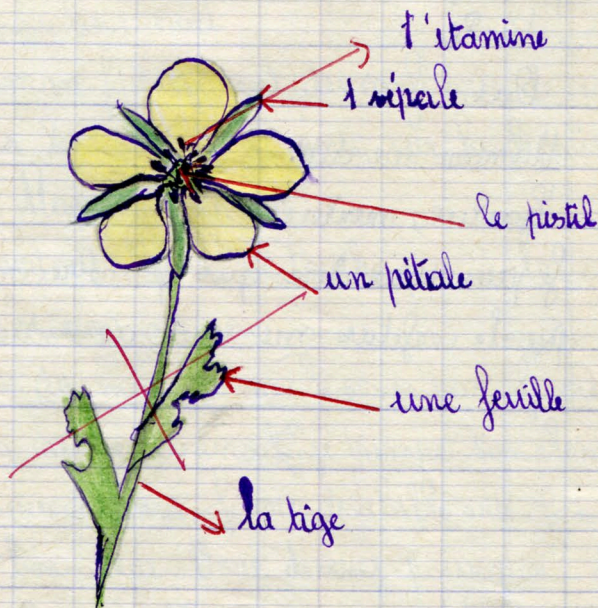 1 'étamine
1 sépale
le pistil
un pétale
une feuille
la tige